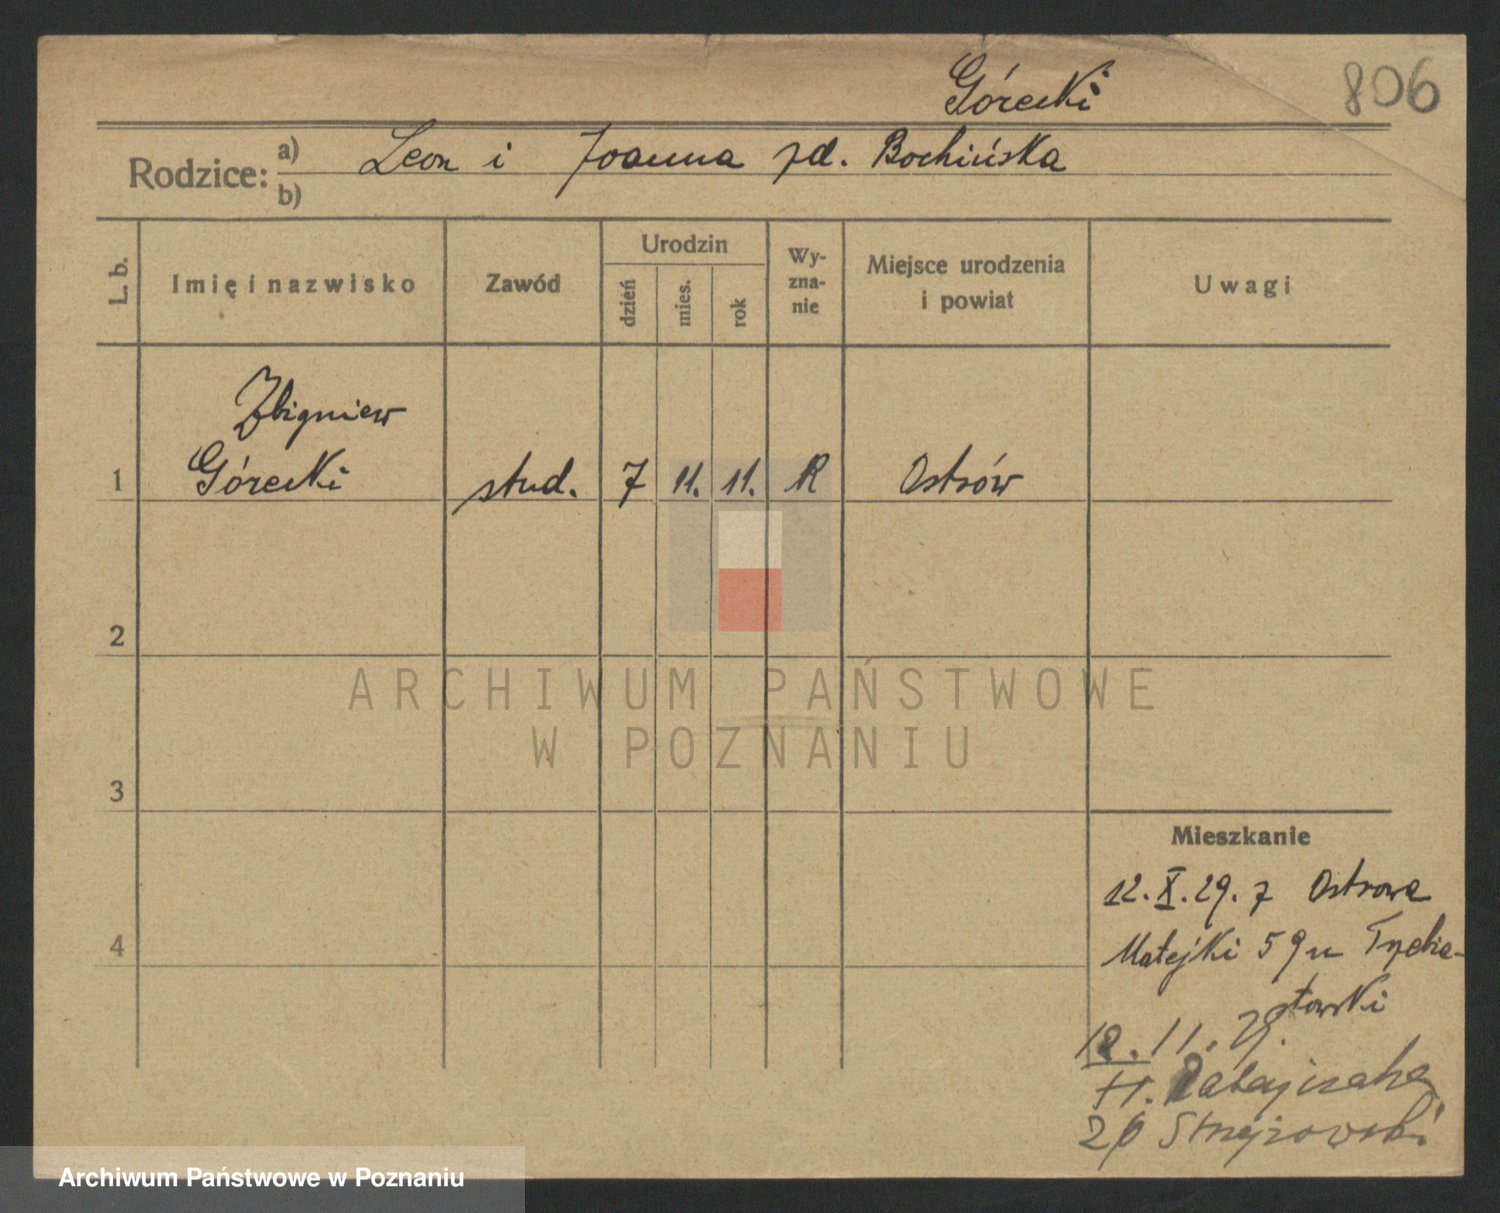 Górecki
806
Rodzice:
a) Leon i Joanna zd. Bochińska
b)
L. b.
Imię i nazwisko
Zawód
Urodzin
dzień
mies.
rok
Wy-
zna-
nie
Miejsce urodzenia
i powiat
Uwagi
Zbigniew
1 Górecki stud. 7 11. 11. R Ostrów
2
3
4
ARCHIWUM PAŃSTWOWE
W POZNANIU
Mieszkanie
12.X.29. z Ostrowa
Matejki 59 u
stowski
18.11.29.
Fr. Ratajczaka
20
Archiwum Państwowe w Poznaniu